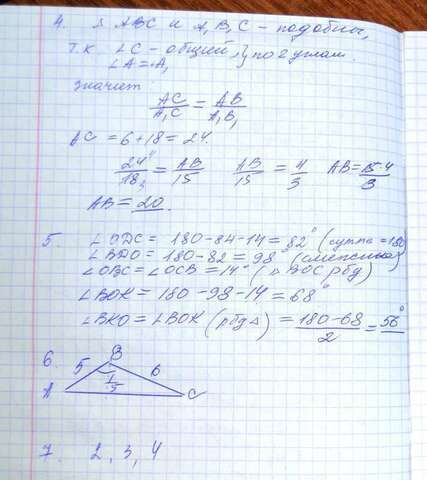 4. Δ ABC и A₁B₁C - подобны,
т.к ∠C - общий, } по 2 углам.
∠A = ∠A₁
значит
AC/A₁C = AB/A₁B₁
AC = 6+18 = 24.
24/18 = AB/15 AB/15 = 4/3 AB = 15·4/3
AB = 20.
5. ∠ODC = 180-84-14 = 82° (сумма = 180)
∠BDO = 180-82 = 98° (смежные)
∠OBC = ∠OCB = 14° (Δ BOC рбд)
∠BOK = 180-98-14 = 68°
∠BKO = ∠BOK (рбд Δ) = 180-68/2 = 56°
6. B
5 6
1/5
A C
7. 2, 3, 4